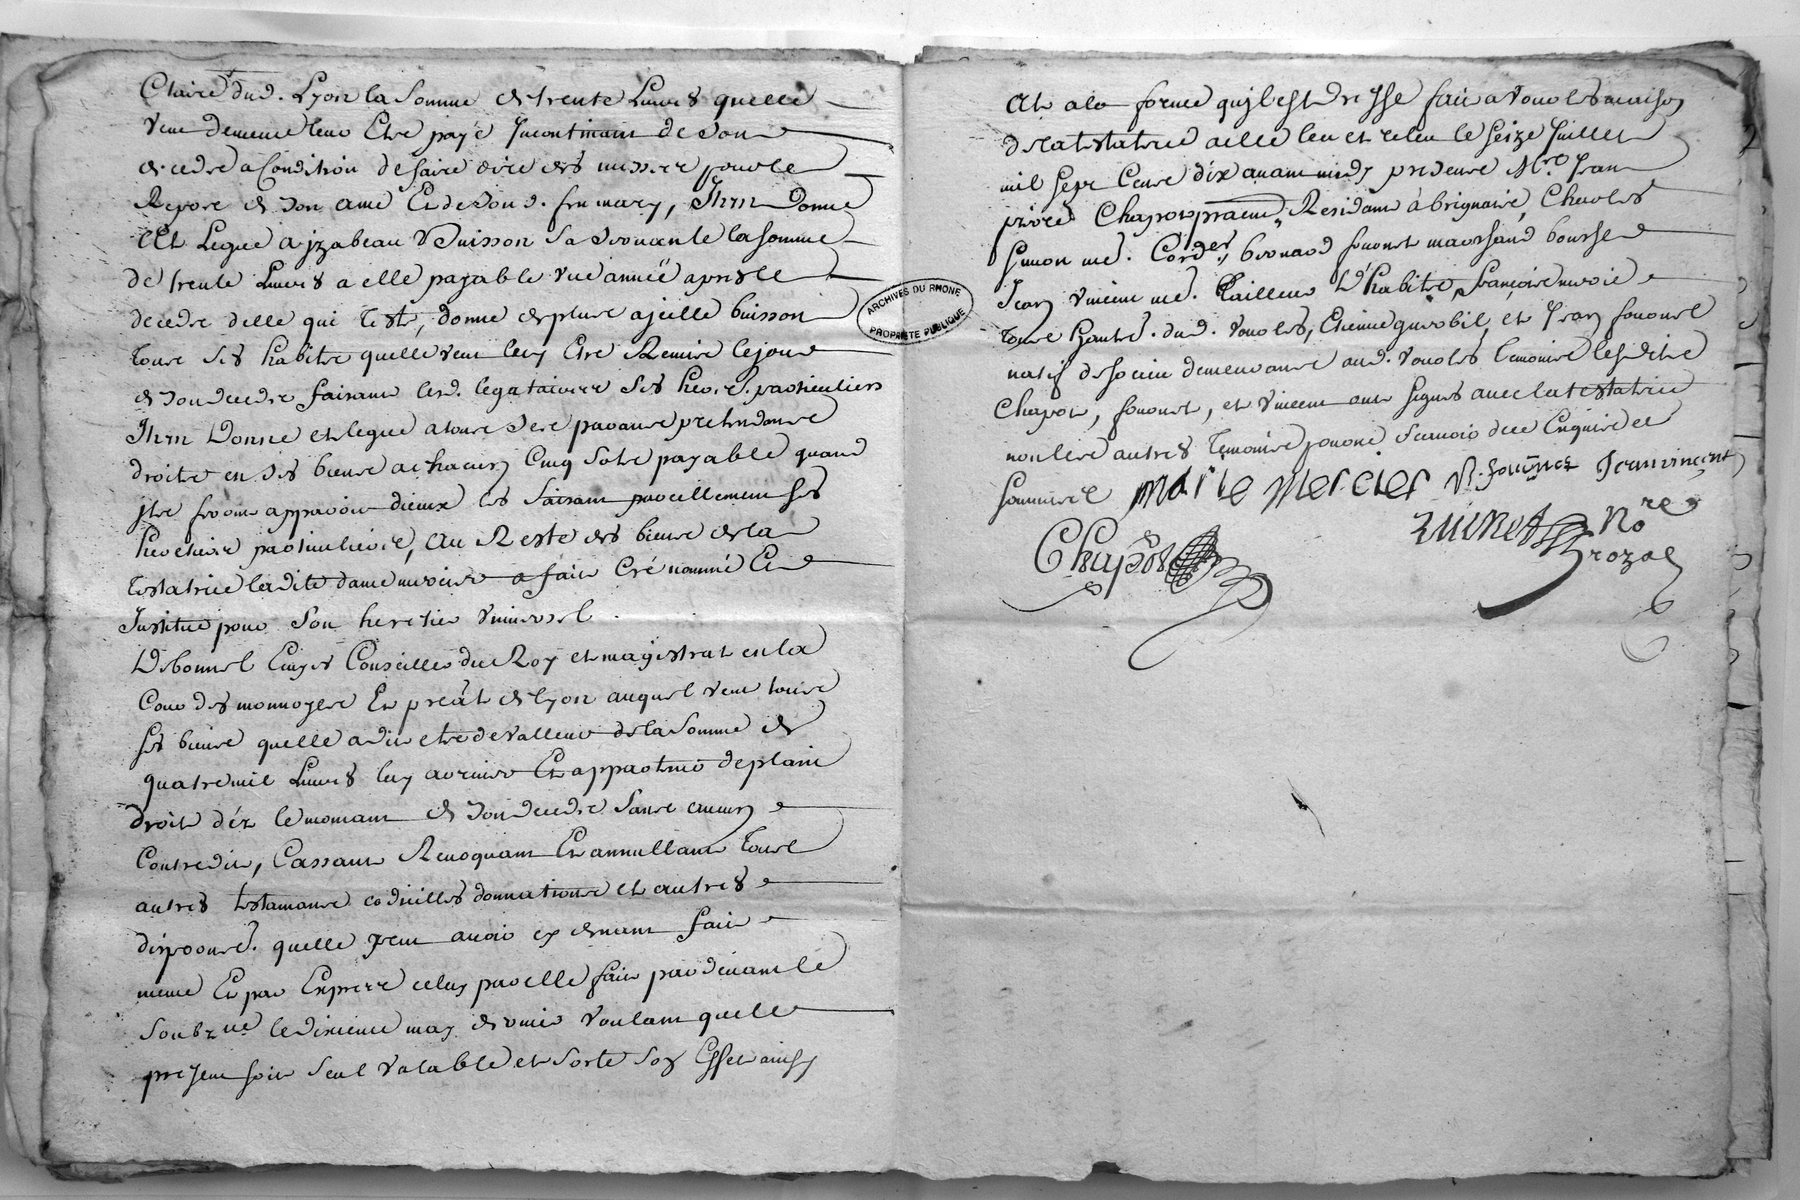 Claire dud. Lyon la somme de trente Livres quelle
veut dememe leur Etre payé Incontinant de son
decedre a Condition de faire dire des messes pour le
Repore de son ame Et de Son d. feu mary, Item Donne
Et Legue a jzabeau Buisson sa servante la somme
de trente Livres a elle payable une année apres le
decedre delle qui teste, donne de plus a jcelle buisson
tous ses habitre quelle veut leur Etre Remire le jour
de son decedre faisant lesd. legataires ses heire. particuliers
Item Donne et legue a tous Sere parans pretendans
droitre en ses biens a chacun Cinq Solre payable quand
jlre feront apparoir dieux les faisant pareillement ses
heretiere particuliere, Au Reste des biens de la
testatrice ladite dame mercier a fait Cré nommé Et
Institué pour Son heretier universel
Debonnel Conseiller du Roy et magistrat en la
Cour des monnoyere Et préalt de lyon auquel veut tous
ses biens quelle a dit etre de valleur de la Somme de
quatre mil Livres luy arriver Et appartenir de plain
droit déz le momant de Son decedre Sans aucun
Contredit, Cassant Revoquant Et annullant Tous
autres testamans codicilles donnations et autres
dispoons. quelle peut avoir cy devant fait
meme Et par Exprere celuy par elle fait par devant le
Soubzné le dixieme may dernier voulant que le
present soit Seul valable et sorte Son Effet ainsy
Et a la forme qujl est dresse fait a vourles maison
de la testatrice a elle leu et releu le seize Juillet
mil sept Cens dix avant midy presens Mre. Jean
Chapot Residant à brignaire, Charles
Simon me. Cord.er, bernard fournet marchand boursie
Jean vincent me. Tailleur D'habitre françoire
tous hantr. dud. vourles, Etienne et Jean
natif de demeurans aud. vourles temoins lesdits
Chapot, fournet, et vincent ont signes avec la testatrice
non les autres temoins pour ne Scavoir de ce Enquire et
sommere marie Mercier B. fournet Jeanvincent
Chapot No.re